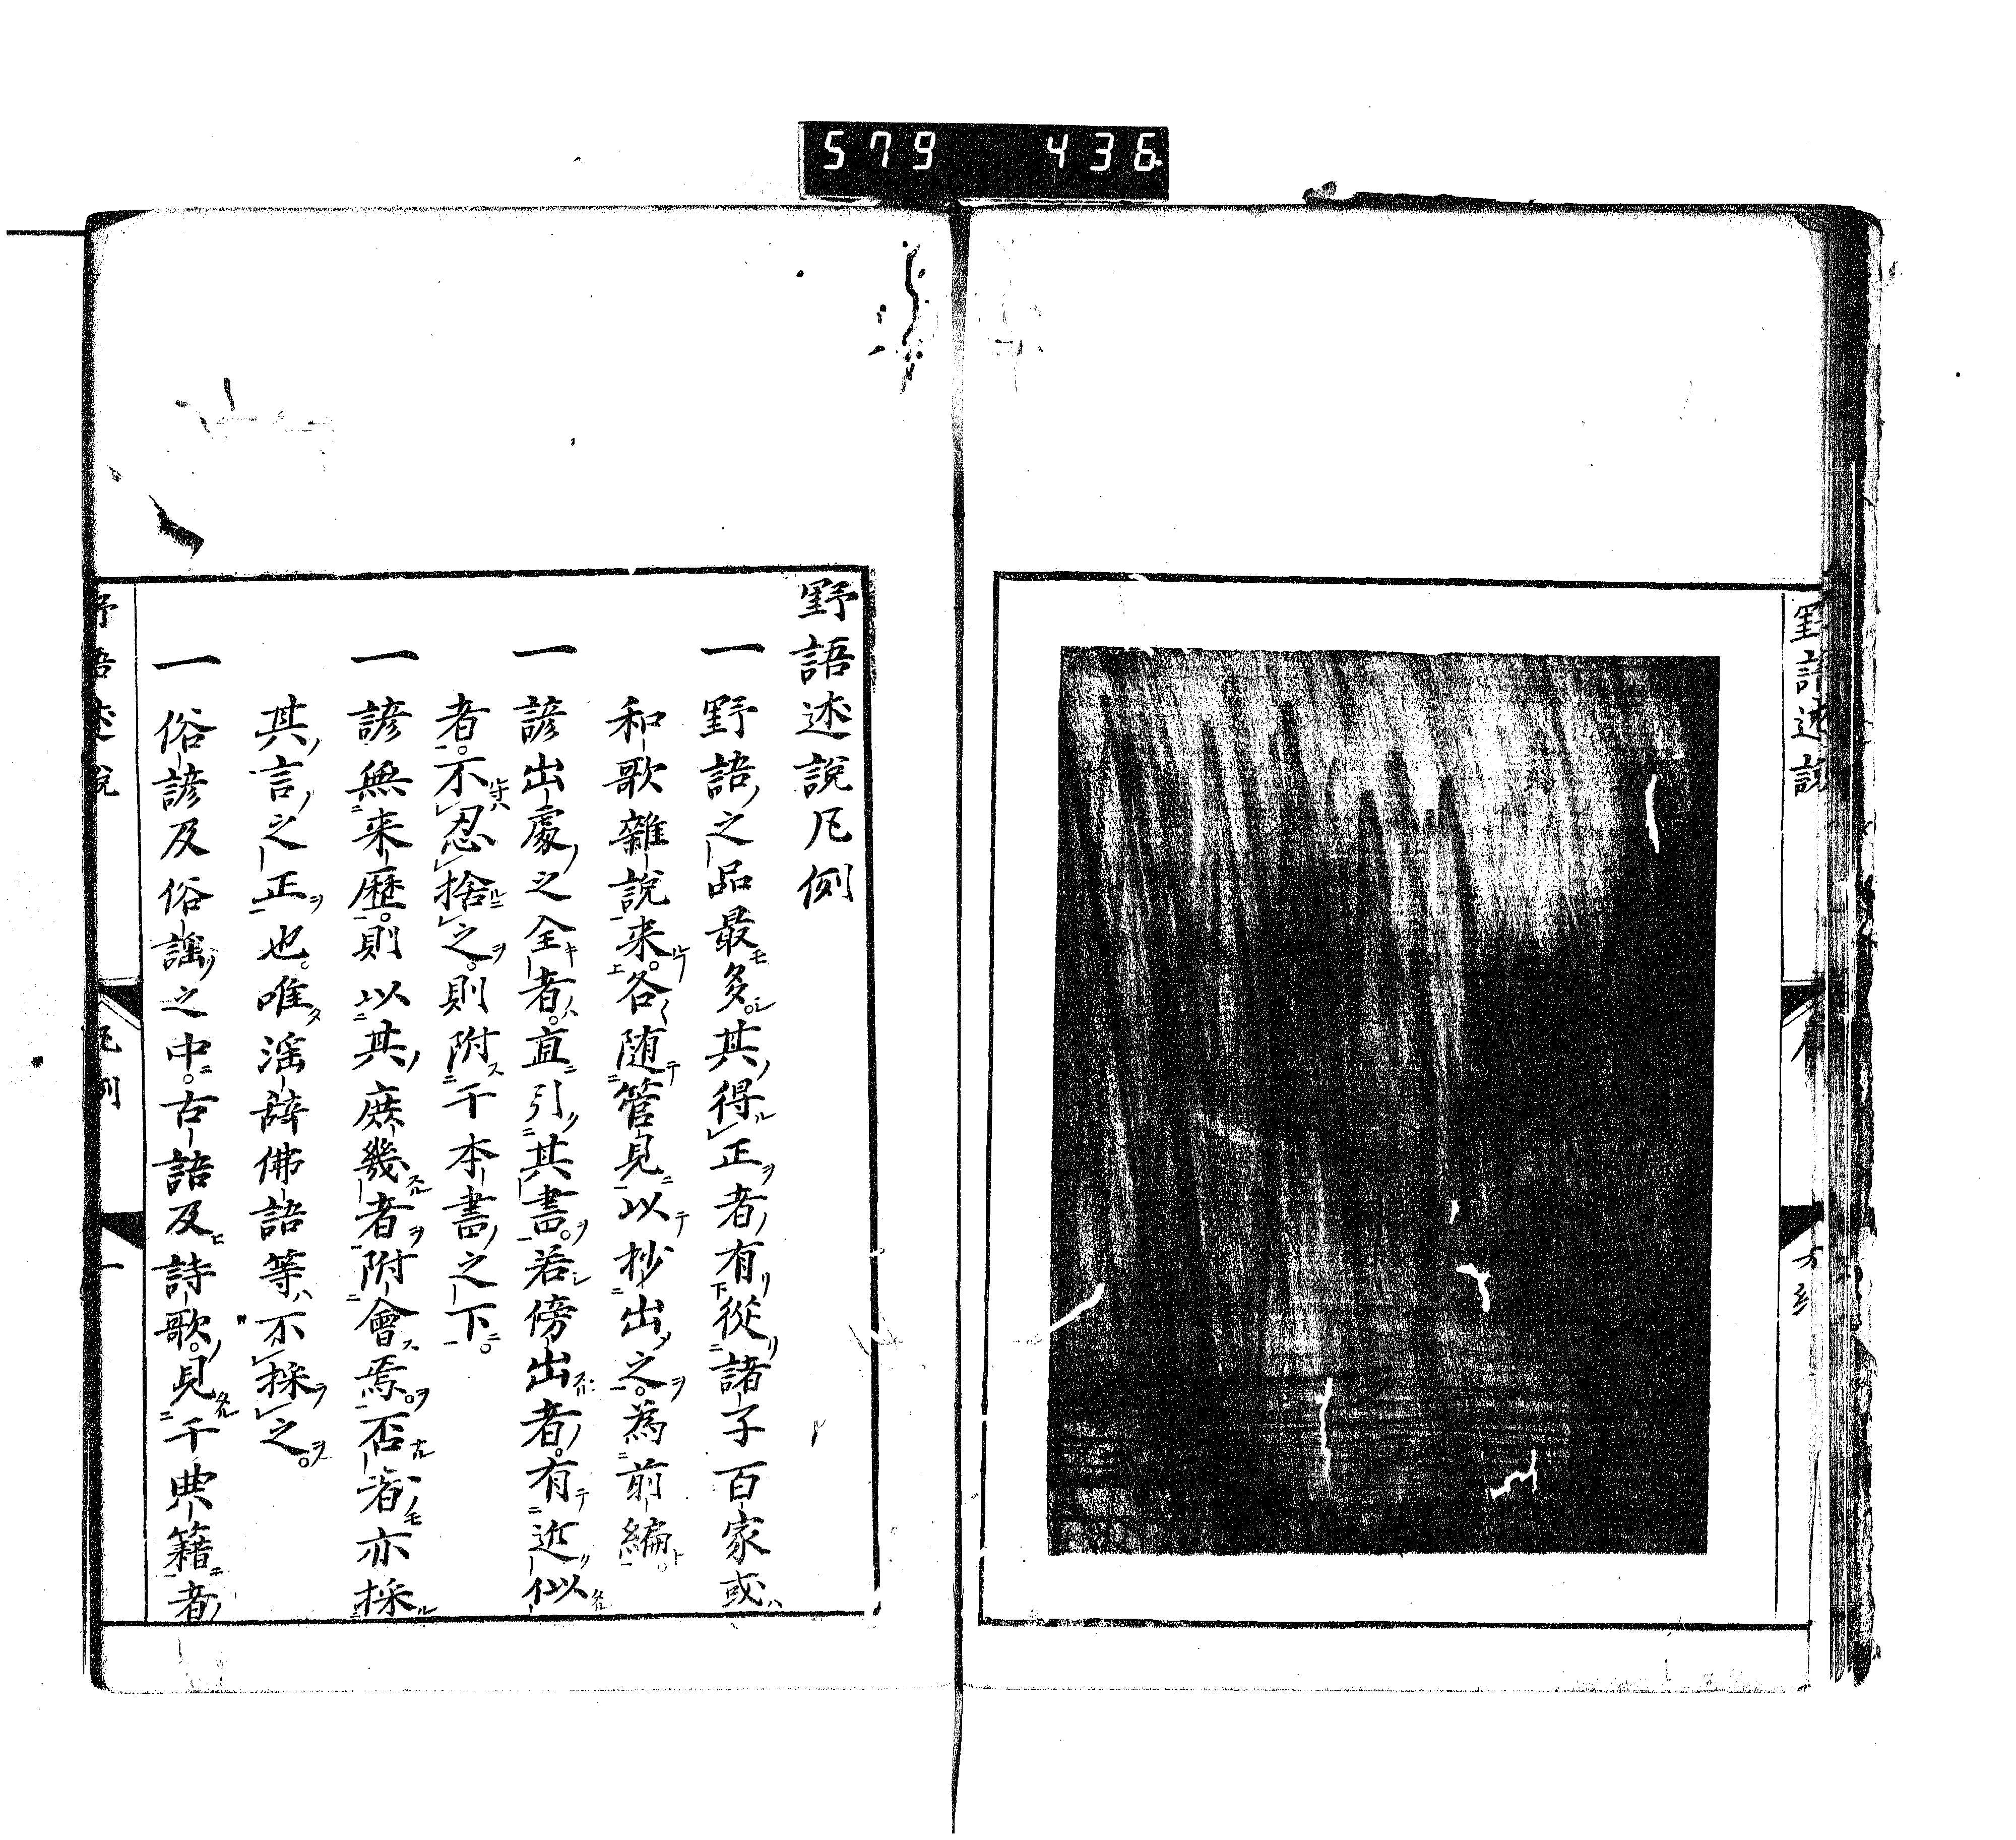 579 436
野語述說
野語述說凡例
一野語之品最多其得正者有從諸子百家或
和歌雜說来各随管見以抄出之為前編
一諺出處之全者直引其書若傍出者有近似
者不忍捨之則附于本書之下
一諺無来歷則以其庶幾者附會焉否者亦採
其言之正也唯滛辞佛語等不採之
一俗諺及俗謡之中古語及詩歌見于典籍者
野語述說
凡例
一